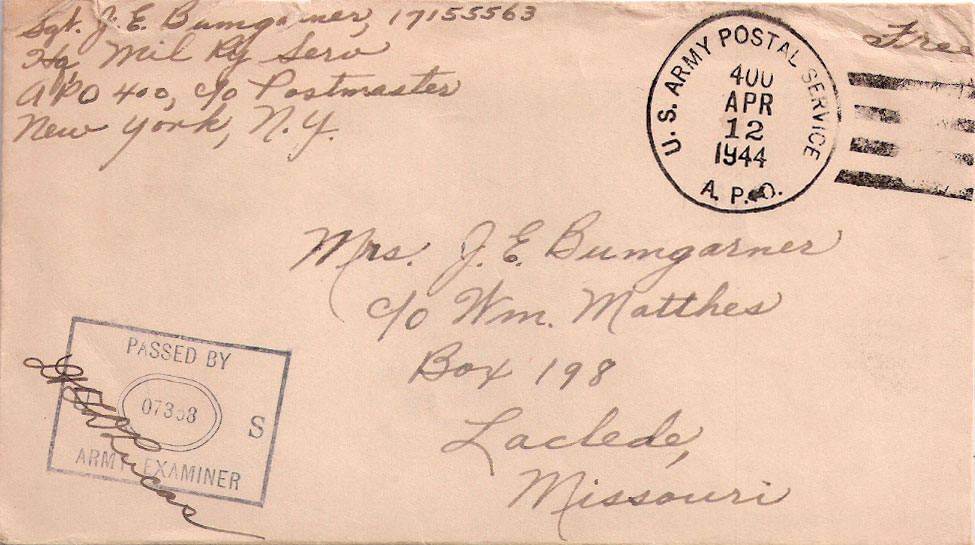 Sgt. J. E. Bumgarner, 17155563
Hq Mil Ry Serv
APO 400, c/o Postmaster
New York, N.Y.
Free
U. S. ARMY POSTAL SERVICE
400
APR
12
1944
A. P. O.
Mrs. J. E. Bumgarner
c/o Wm. Matthes
Box 198
Laclede,
Missouri
PASSED BY
S
ARMY EXAMINER
Lucas